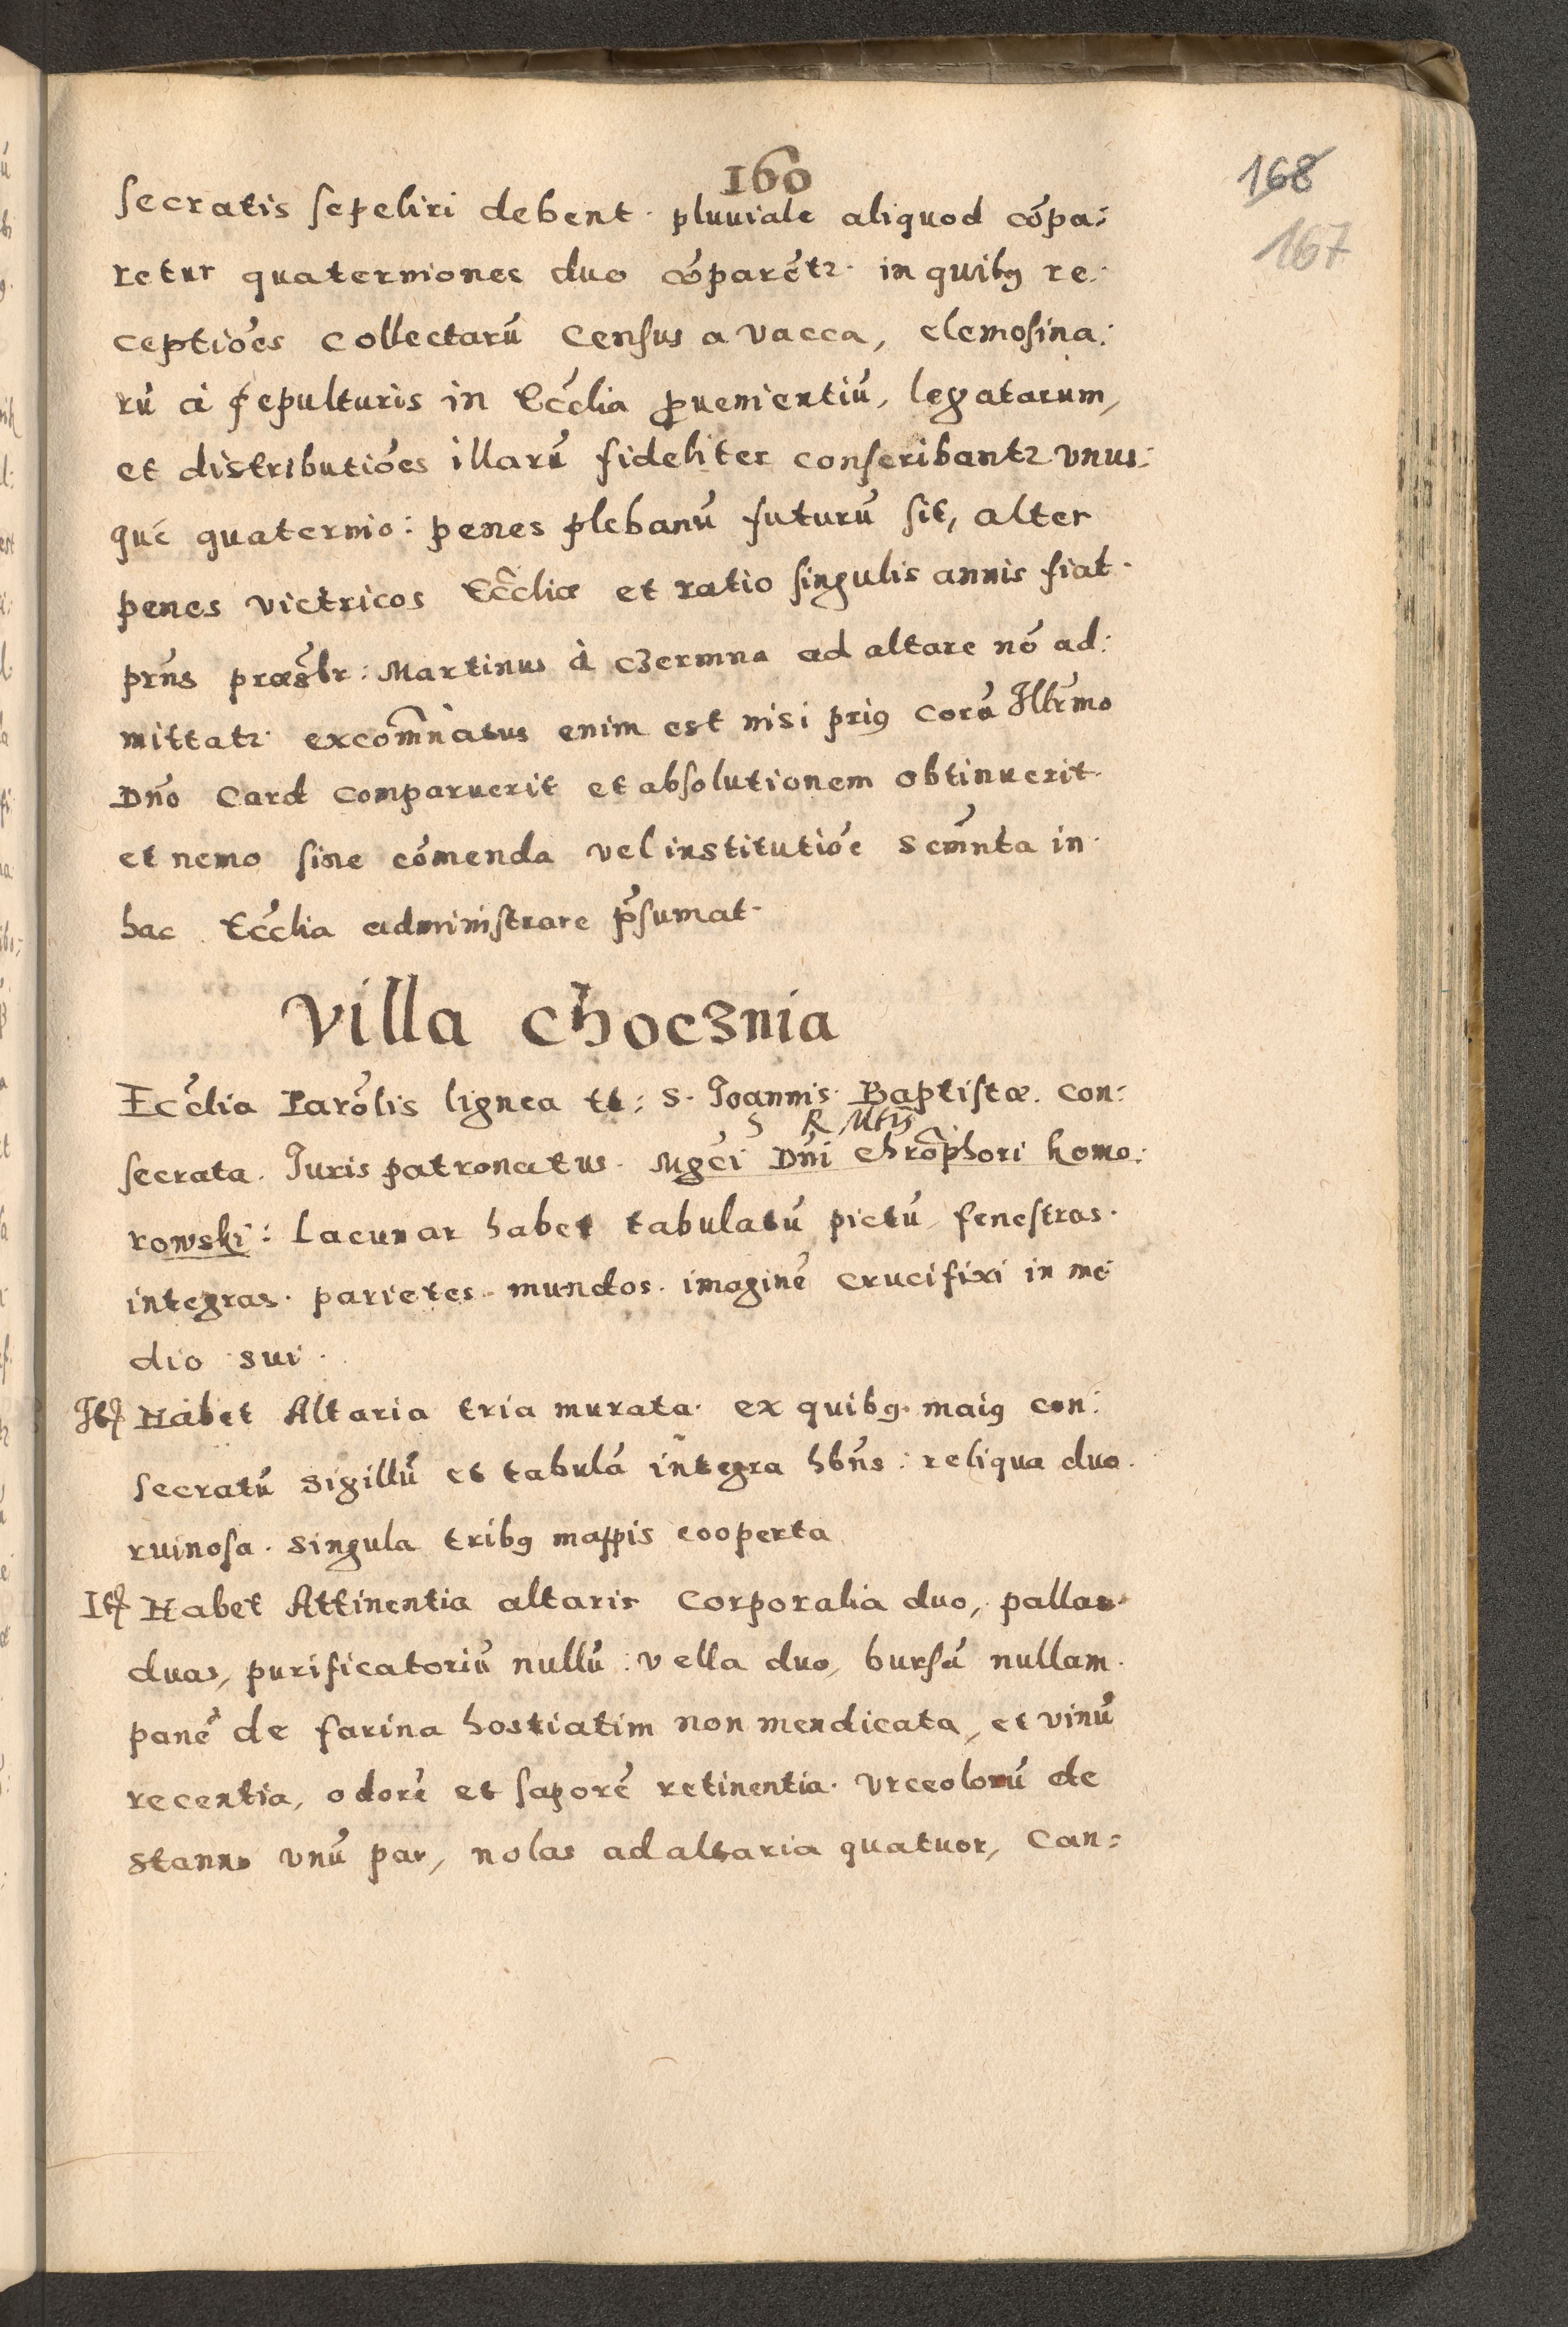 160
168
167
secratis sepeliri debent. pluuiale aliquod cōpa:
retur quaterniones duo cōparēt2. in quibꝰ re:
ceptiōes collectarū Census a vacca, elemosina:
rū à sepulturis in Eccl̃ia ꝓuenientiū, legatarum,
et distributiōes illarū fideliter conscribant2 vnus:
quē quaternio: penes plebanū futurū sit, alter
penes victricos Eccl̃iæ et ratio singulis annis fiat.
prn̄s præsbr̃: Martinus à Czermna ad altare nō ad:
mittat2. excom̄natus enim est nisi priꝰ corā Illr̄mo
Dn̄o Card comparuerit et absolutionem obtinuerit.
et nemo sine cōmenda vel institutiōe Scm̄nta in
hac Eccl̃ia administrare p̄sumat.
Villa Chocznia
Eccl̃ia Parōlis lignea tt: S. Joannis Baptistæ. con:
S R Mtis
secrata. Juris patronatus. Mgc̄i Dn̄i Chrōphori Komo:
rowski: Lacunar habet tabulatū pictū, fenestras.
integras. parietes. mundos. imaginē Crucifixi in me
dio sui.
Itẽ Habet Altaria tria murata. ex quibꝰ. maiꝰ con:
secratū sigillū et tabulā integrā hbn̄s: reliqua duo.
ruinosa. singula tribꝰ mappis cooperta
Itẽ Habet Attinentia altaris Corporalia duo, pallas
duas, purificatoriū nullū: vella duo, bursā nullam.
panē de farina hostiatim non mendicata, et vinū
recentia, odorē et saporē retinentia. Vrceolorū de
stanno vnū par, nolas ad altaria quatuor, Can: